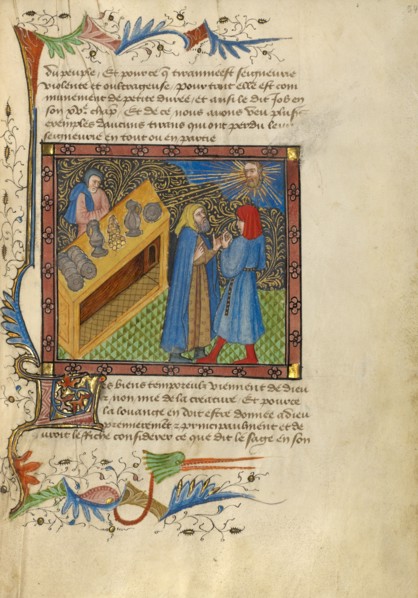 du peuple / Et pource q tirannie est seigneurie
violente et oultrageuse / pourtant elle est com
munement de petite duree / et ainsi le dit Job en
son chap / Et de ce nous avons veu plusi
exemples daucuns tirans qui ont perdu leur
seigneurie en tout ou en partie
Les biens temporeulz viennent de dieu
z non mie de la creature / Et pource
la louange en doit estre donnee a dieu
premierement z principaulment et de
le riche considerer ce que dit le sage en son